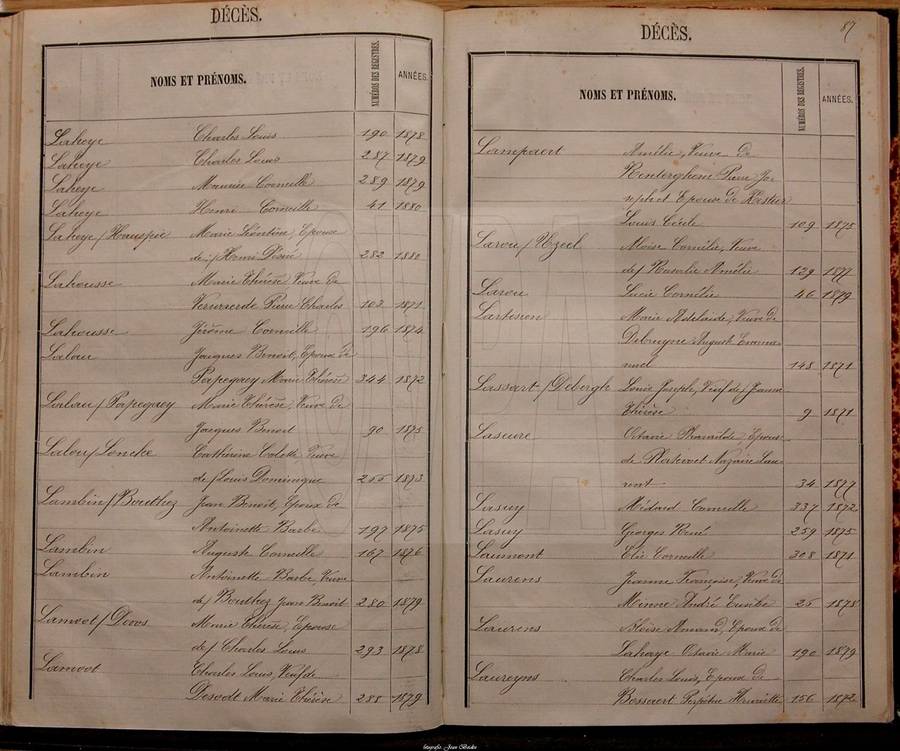 DÉCÈS.
NOMS ET PRÉNOMS. NUMÉROS DES REGISTRES. ANNÉES.
Lahaye Charles Louis 190 1878
Lahaye Charles Louis 287 1879
Lahaye Maurice Corneille 289 1879
Lahaye Henri Corneille 41 1880
Lahaye / Hauspie Marie Léontine, Epouse
de / Henri Désiré 282 1880
Lahousse Marie Thérèse Veuve de
Pierre Charles 102 1871
Lahousse Jérôme Corneille 196 1874
Lalau Jacques Benoit, Epoux de
Papegaey Marie Thérèse 344 1872
Lalau / Papegaey Marie Thérèse, Veuve de
Jacques Benoit 90 1875
Lalou / Loncke Catherine Colette, Veuve
de / Louis Dominique 255 1873
Lambin / Bouthez Jean Benoît, Epoux de
Antoinette Barbe 197 1875
Lambin Auguste Corneille 167 1876
Lambin Antoinette Barbe, Veuve
de / Bouthez Jean Benoit 280 1879
Lamoot / Devos Marie Thérèse, Epouse
de / Charles Louis 293 1878
Lamoot Charles Louis, Veuf de
Marie Thérèse 288 1879
87
DÉCÈS.
NOMS ET PRÉNOMS. NUMÉROS DES REGISTRES. ANNÉES.
Lampaert Amélie, Veuve de
Renterghem Pierre Jo-
seph et Epouse de
Louis Cécile 109 1875
Veuve
de / Rosalie Amélie 129 1877
Larou Lucie Cornélie 46 1879
Marie Adelaide, Veuve de
Debruyne Auguste Emma-
nuel 148 1871
Lassart / Debergh Louis Joseph, Veuf de / Jeanne
Thérèse 9 1871
Laseure Octavie Pharaïlde, Epouse
de Nazaire Lau
rent 34 1877
Lasuy Médard Corneille 337 1872
Lasuy Georges René 259 1875
Laumont Elie Corneille 308 1871
Laurens Jeanne Françoise, Veuve de
Minne André Eusèbe 25 1878
Laurens Aloïse Amand, Epoux de
Lahaye Octavie Marie 190 1879
Laureyns Charles Louis, Epoux de
Bossaert Perpétue Henriette 156 1872
fotografie Jean Baelen